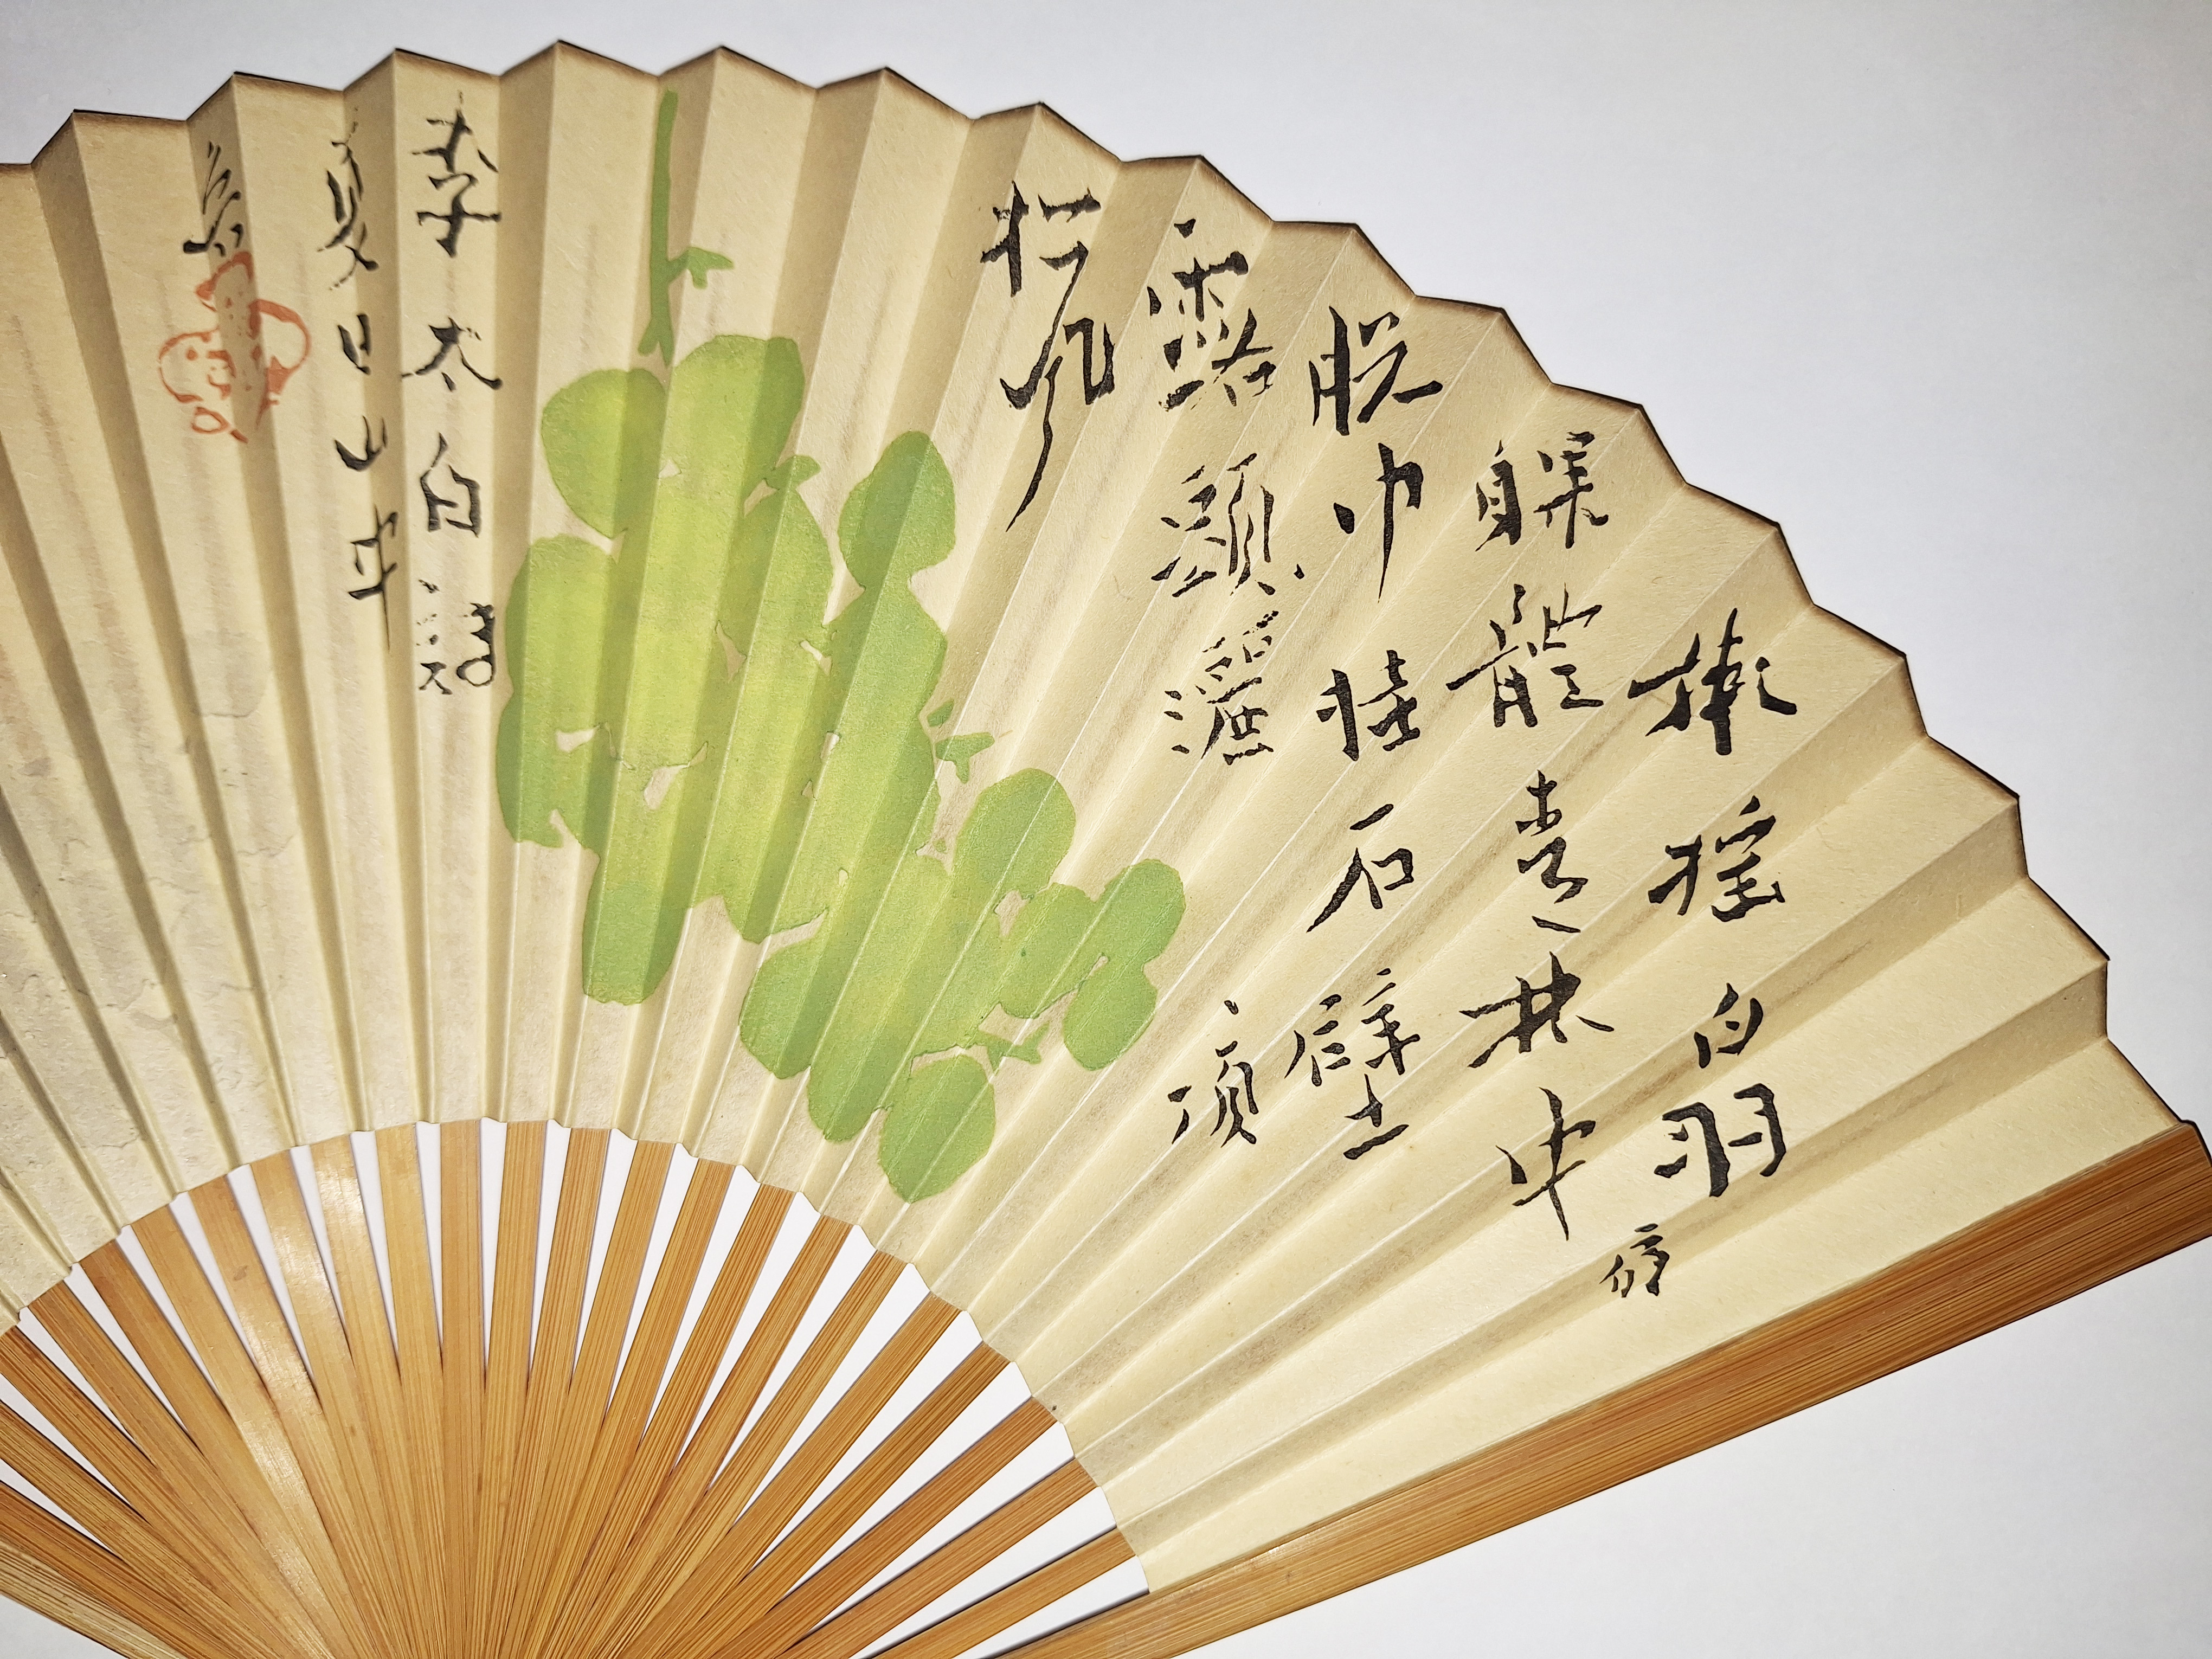 懶搖白羽
躶體青林中
脱巾挂石壁
露頭灑、頂
松風
李太白詩
夏日山中